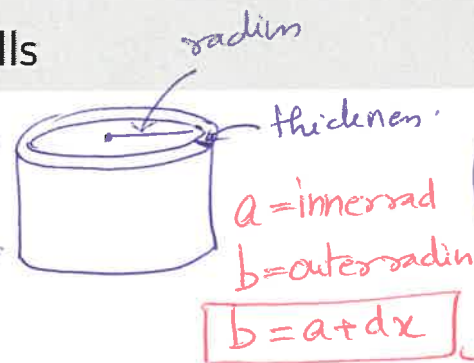 lls
radius
thickness.
a = inner rad
b = outer radiu
b = a + dx